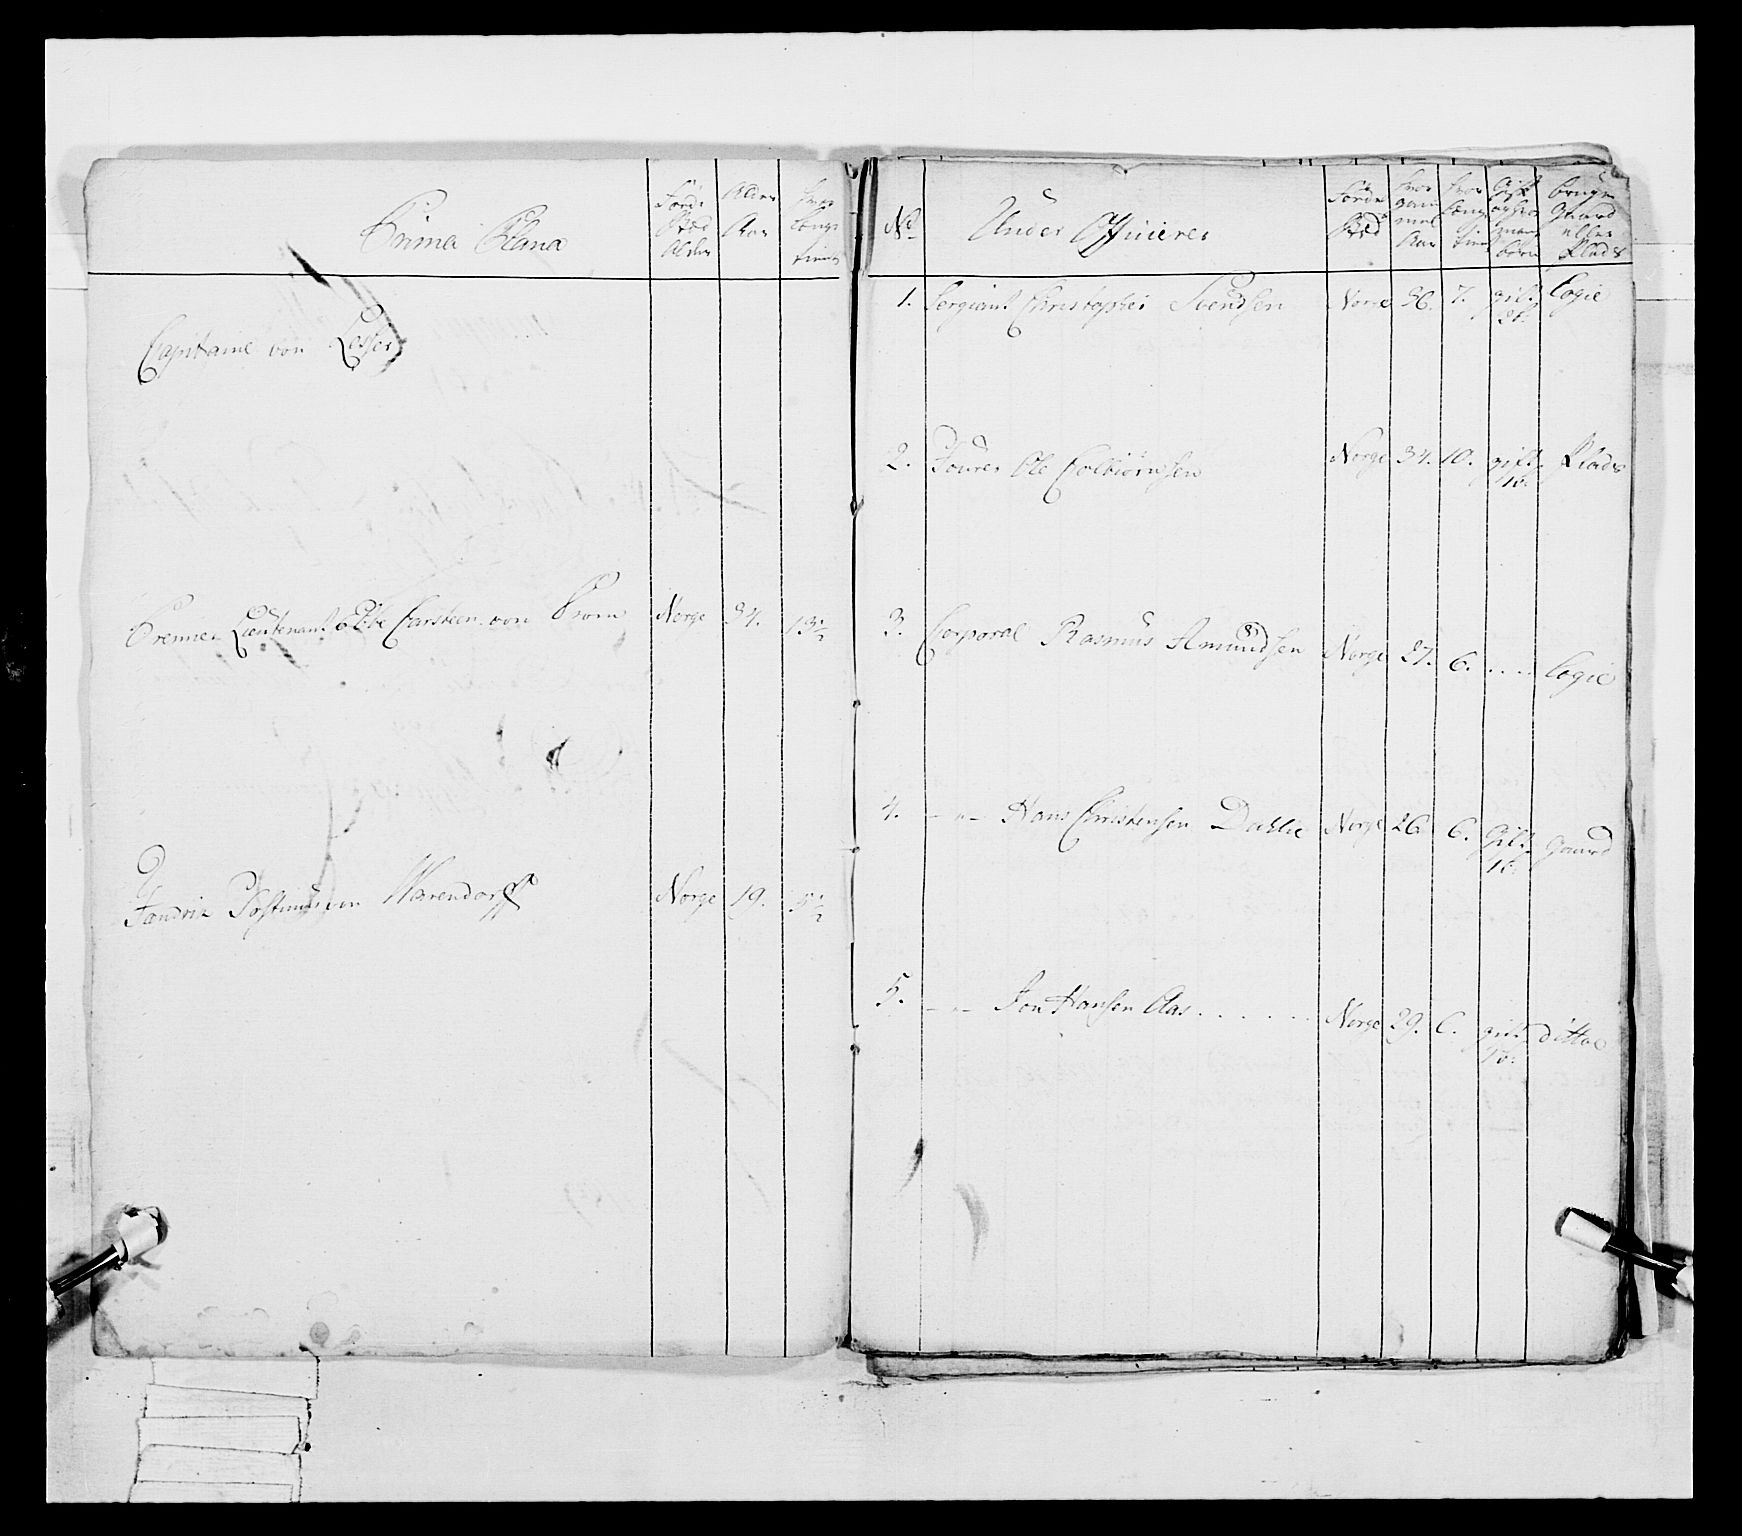 Prima Plana
Føde Sted Alder
Alder Aar
Hvor længe tient
Capitaine von Lesser
Premier Lieutenant Carsteen von Norge 34. 13½
Fændrik von Warendorff Norge 19. 5½
No
Under Officierer
Føde Sted
Hvor gammel Aar
Hvor længe tient
Gift
børn
bruger Gaard eller Plads
1. Sergiant Christopher Svendsen Norge 36. 7. gift 2b. Logie
2. Fourer Ole Colbiørnsen Norge 34. 10. gift 1b. Plads
3. Corporal Rasmus Amundsen Norge 27. 6. .... Logie
4. - " - Hans Christensen Dahlie Norge 26. 6. Gift 1b. gaard
5. - " - Jon Hansen Aas ...... Norge 29. 6. gift 1b. ditto